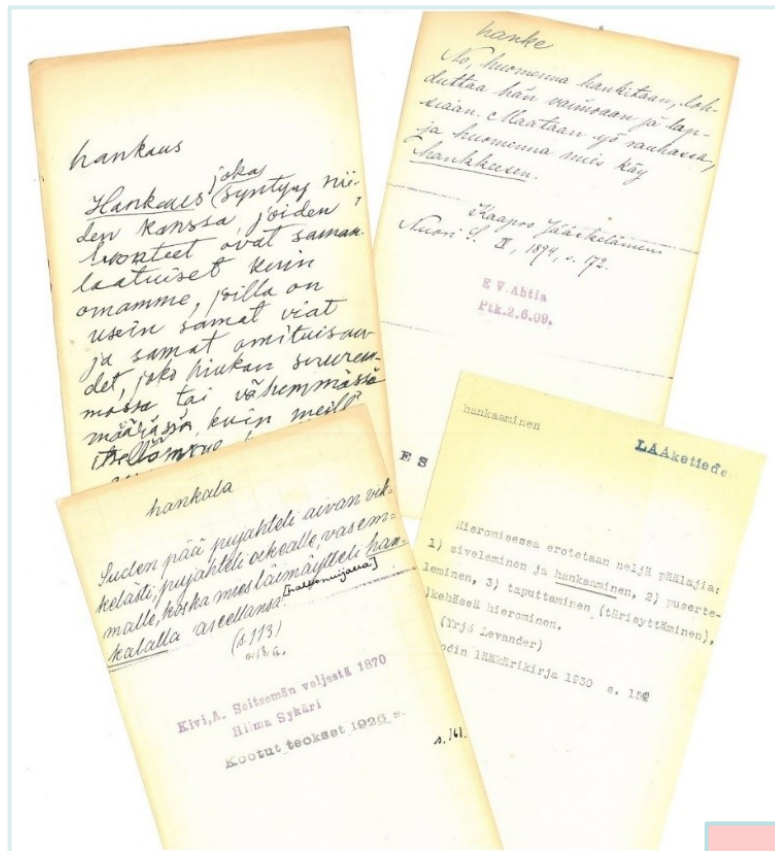 hankaus
joka
Hankaus (syntyy nii-
den kanssa, joiden
luonteet ovat saman-
laatuiset kuin
omamme, joilla on
usein samat viat
ja samat omituisuu-
det, joko hiukan suurem-
massa tai vähemmässä
määrässä, kuin meillä
itsellämme
hanke
No, huomenna hankitaan, loh-
duttaa hän vaimoaan ja lap-
siaan. Maataan yö rauhassa,
ja huomenna mies käy
hankkeesen.
Kaapro Jääskeläinen
Nuori S. II, 1894, s. 172.
E V.Ahtia
Ptk.2.6.09.
E S
hankala
Suden pää pujahteli aivan vik-
kelästi, pujahteli oikealle, vasem-
malle, koska mies läimäytteli han-
[halkonuijalla]
kalalla aseellansa.
(s.113)
Kivi,A. Seitsemän veljestä 1870
Hilma Sykäri
Kootut teokset 1926 s.
s. 161.
hankaaminen
LÄÄketiede
Hieromisessa erotetaan neljä päälajia:
1) siveleminen ja hankaaminen, 2) puserte-
leminen, 3) taputtaminen (tärisyttäminen),
)kehässä hierominen.
(Yrjö Levander)
odin lääkärikirja 1930 s. 152